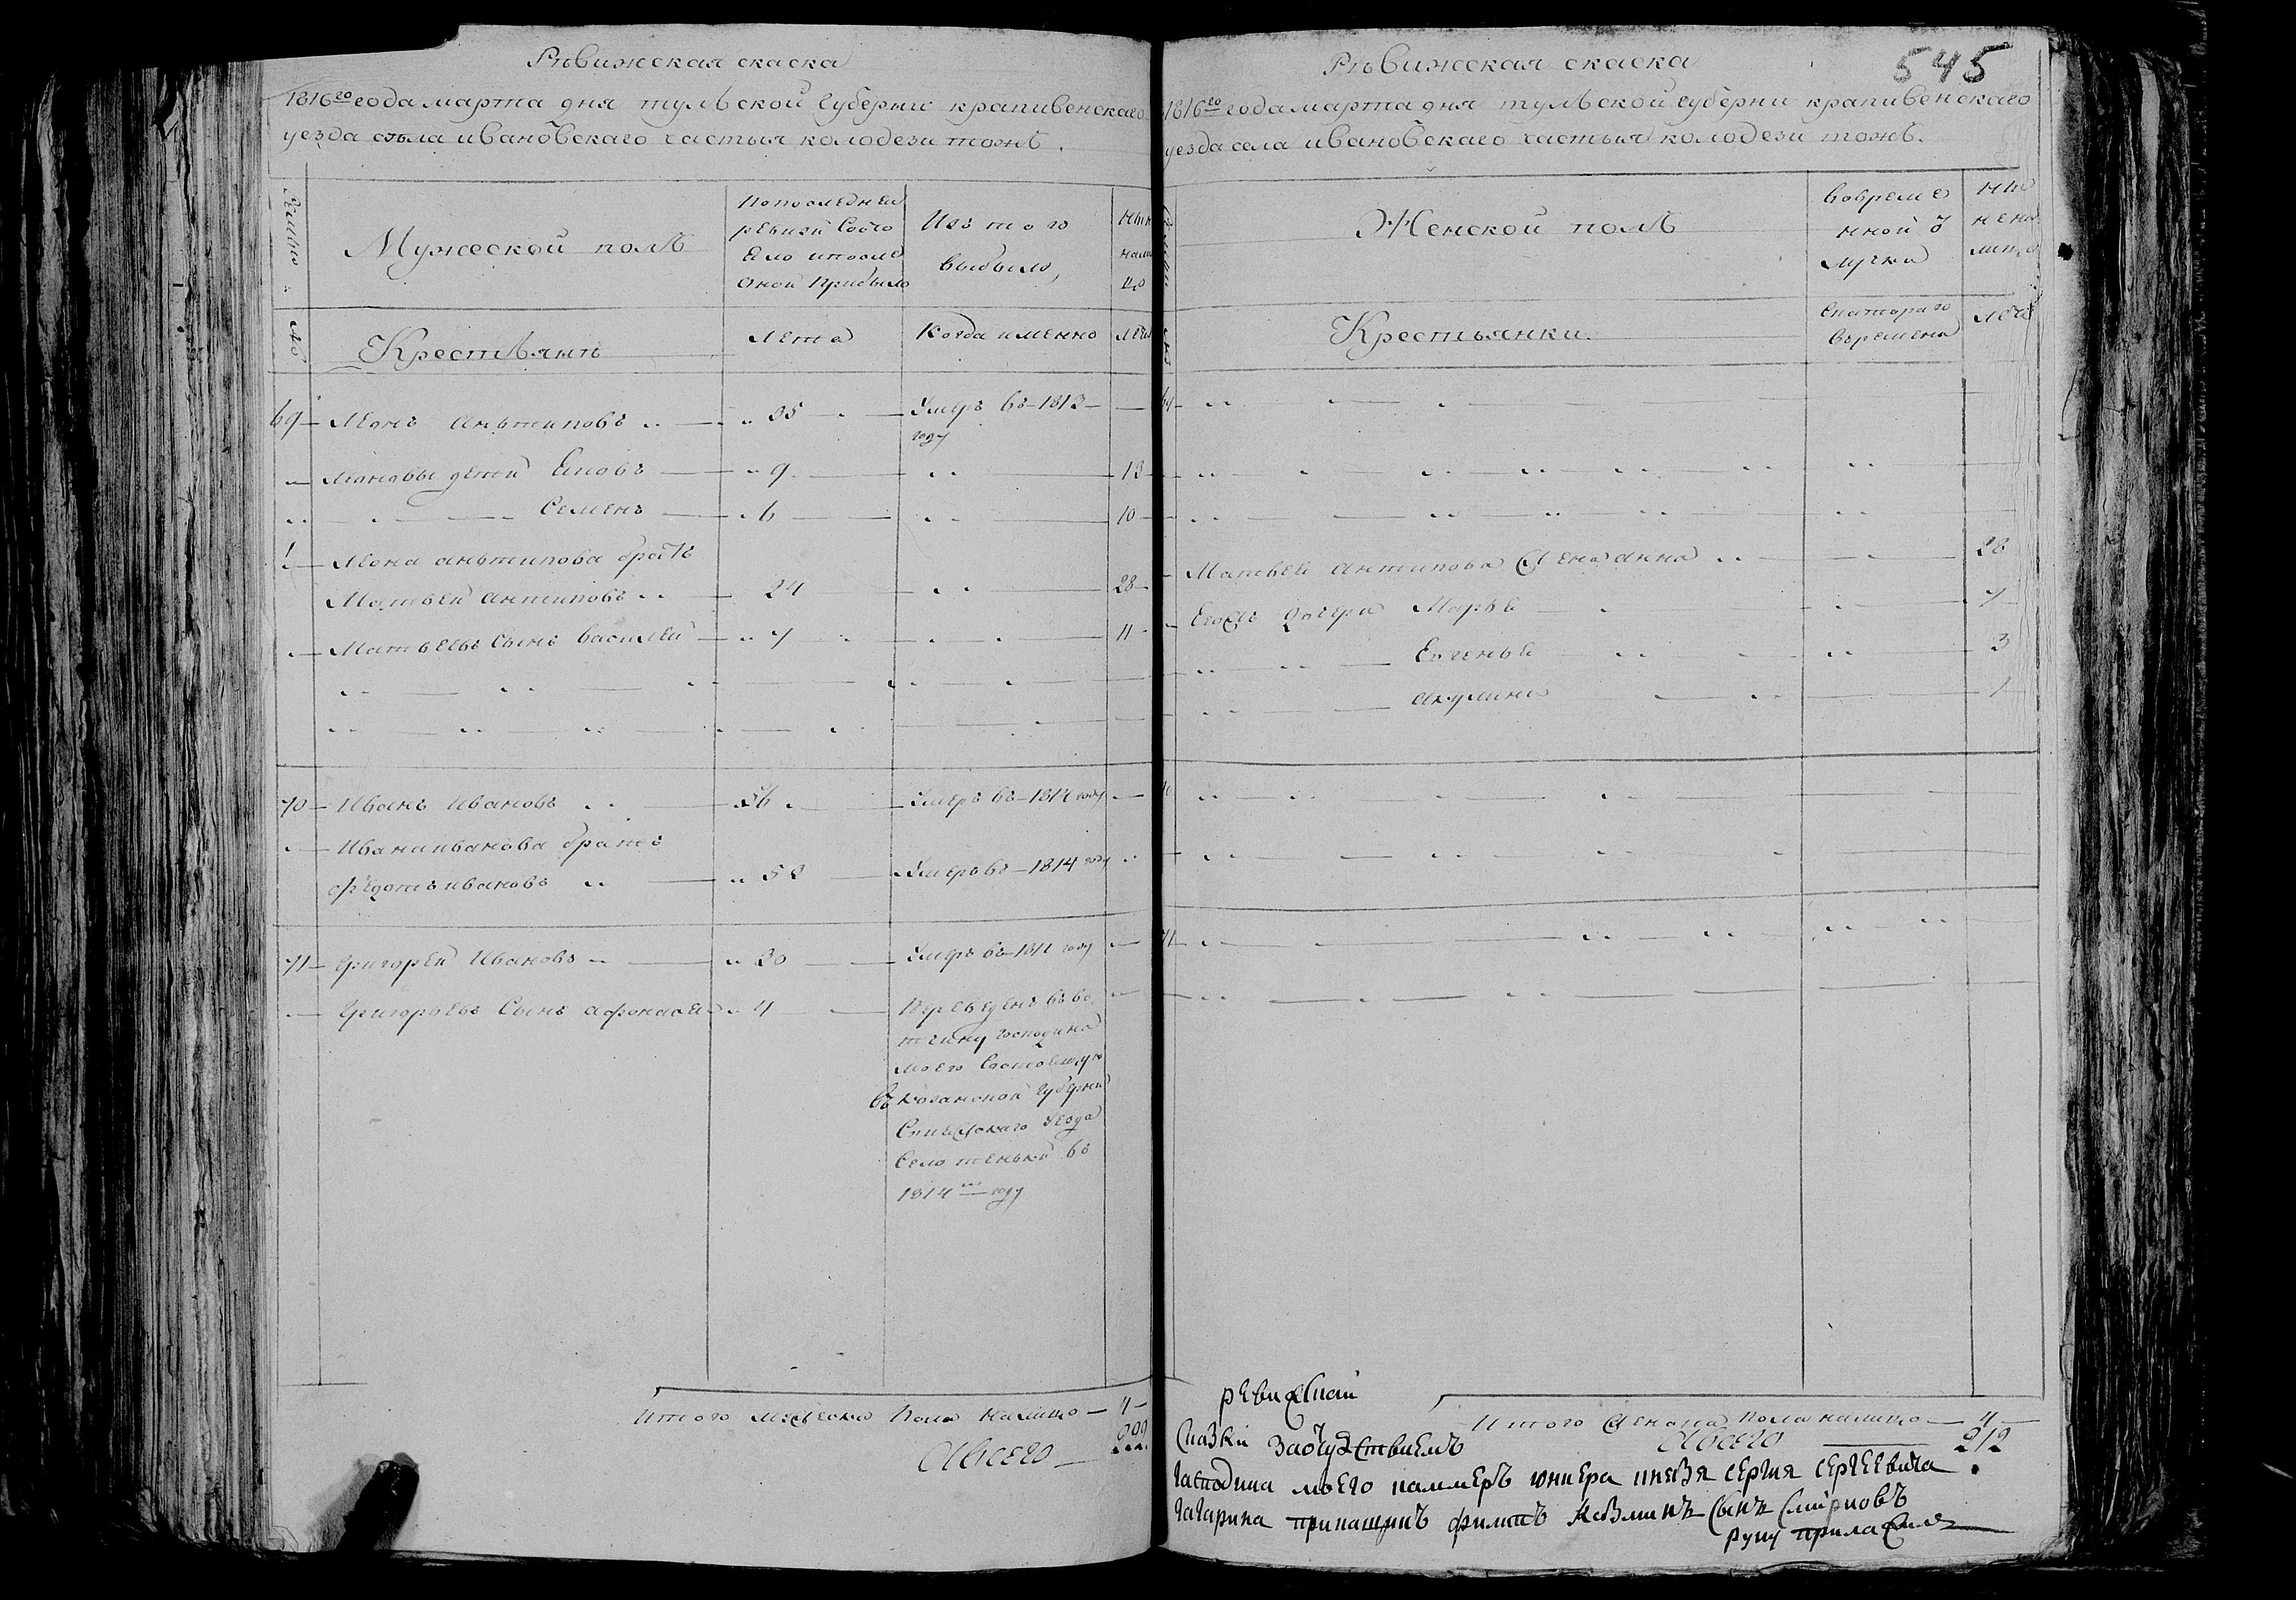 Рѣвижская скаска
1816го года марта дня тульской губерни крапивенскаго
уезда села ивановскаго частыя колодези тожъ.
Мужеской полъ
По последней
ревизи состо
яло и после
оной прибыло
Изъ того
выбыло,
ныне
нали
цо
№
Крестьянъ
Лета
Когда именно
Лета
69 Леонъ антиповъ 35 Умеръ въ 1813
году
Леоновы дети 9 13
Семенъ 6 10
Леона антипова братъ
Матвей антиповъ 24 28
Матвеевъ сынъ василей 7 11
70 Иванъ Ивановъ 56 Умеръ въ 1814 году
Ивана иванова братъ
федотъ ивановъ 52 Умеръ въ 1814 году
71 Григорей Ивановъ 20 Умеръ въ 1811 году
Григорьевъ сынъ афонасей 4 Переведенъ въ во
тчину господина
моего состоящую
въ казанской губерни
Спаскаго уезда
Село теньки въ
1814м году
Итого мужеска пола налицо 4
Авсего
545
Рѣвижская скаска
1816го года марта дня тульской губерни крапивенскаго
уезда села ивановскаго частыя колодези тожъ.
Женской полъ
Вовреме
нной о
лучки
ны
не на
лицо
Крестьянки
Скотораго
времени
лета
69
Матвея антипова жена анна 28
Егожъ дочери Марья 7
Евгенья 3
акулина 1
70
71
Итого женска пола налицо 4
Авсего 212
ревижской
сказки заотсудствиемъ
гасподина моего каммеръ юнкера князя сергия сергеевича
гагарина прикащикъ филипъ козминъ сынъ смирновъ
руку прилажилъ